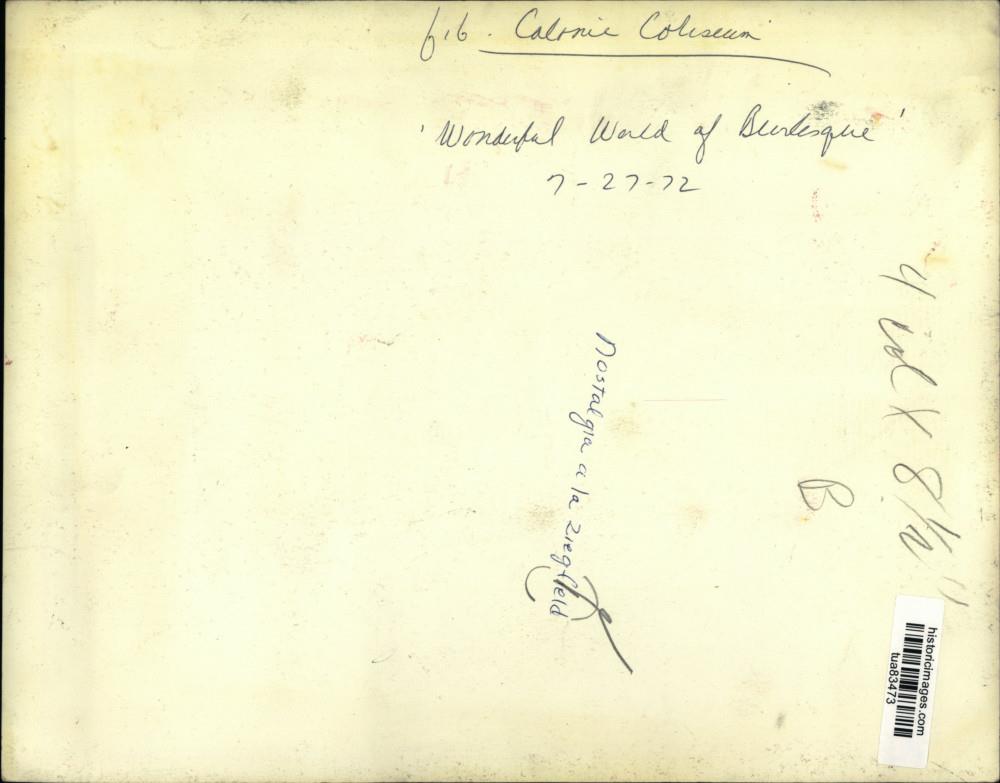 616. Colonie Coliseum
'Wonderful World of Burlesque'
7-27-72
Nostalgia a la Ziegfield
4 col X 8 1/2"
B
historicimages.com
tua83473